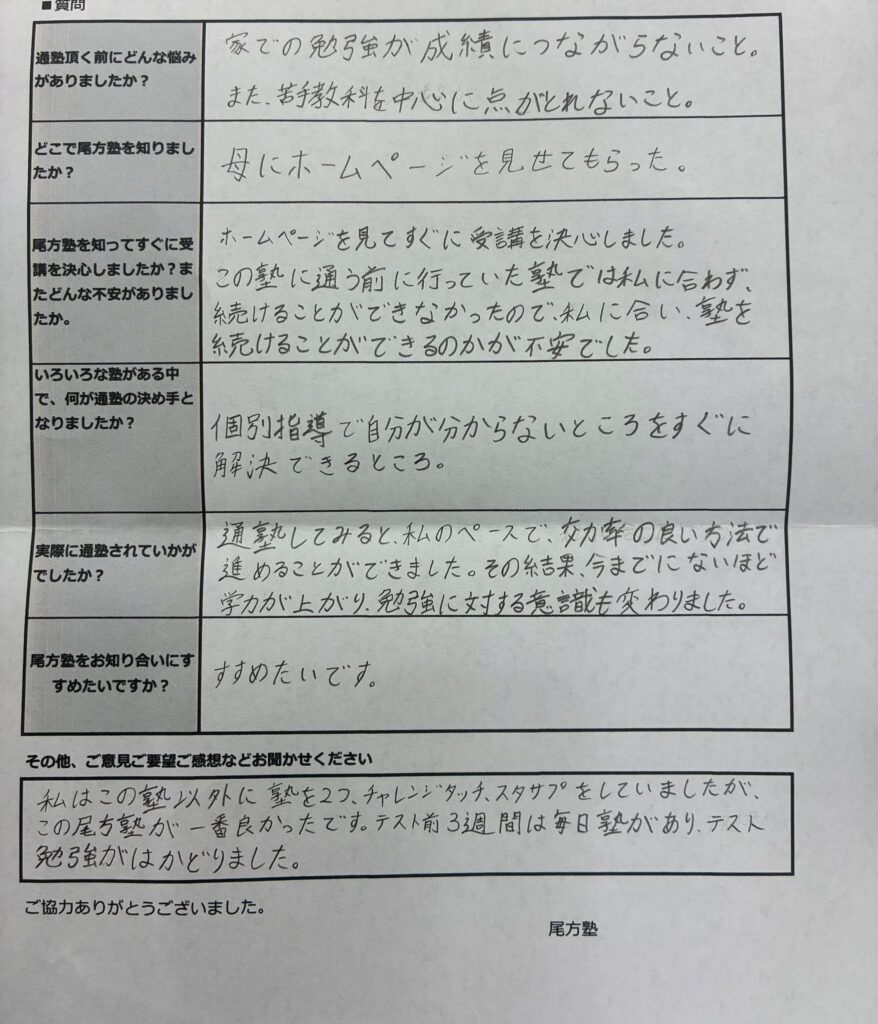 ■質問
通塾頂く前にどんな悩み
がありましたか？
家での勉強が成績につながらないこと。
また、苦手教科を中心に点がとれないこと。
どこで尾方塾を知りまし
たか？
母にホームページを見せてもらった。
尾方塾を知ってすぐに受
講を決心しましたか？ま
たどんな不安がありまし
たか。
ホームページを見てすぐに受講を決心しました。
この塾に通う前に行っていた塾では私に合わず、
続けることができなかったので、私に合い、塾を
続けることができるのかが不安でした。
いろいろな塾がある中
で、何が通塾の決め手と
なりましたか？
個別指導で自分が分からないところをすぐに
解決できるところ。
実際に通塾されていかが
でしたか？
通塾してみると、私のペースで、効率の良い方法で
進めることができました。その結果、今までにないほど
学力が上がり、勉強に対する意識も変わりました。
尾方塾をお知り合いにす
すめたいですか？
すすめたいです。
その他、ご意見ご要望ご感想などお聞かせください
私はこの塾以外に塾を2つ、チャレンジタッチ、スタサプをしていましたが、
この尾方塾が一番良かったです。テスト前3週間は毎日塾があり、テスト
勉強がはかどりました。
ご協力ありがとうございました。
尾方塾